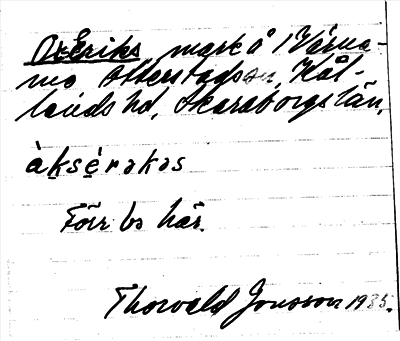 Ox-Eriks mark å 1 Värna-
mo Otterstads sn, Kål-
lands hd, Skaraborgs län.
àksérəkəs
Förr bs här.
Thorvald Jonsson 1935.